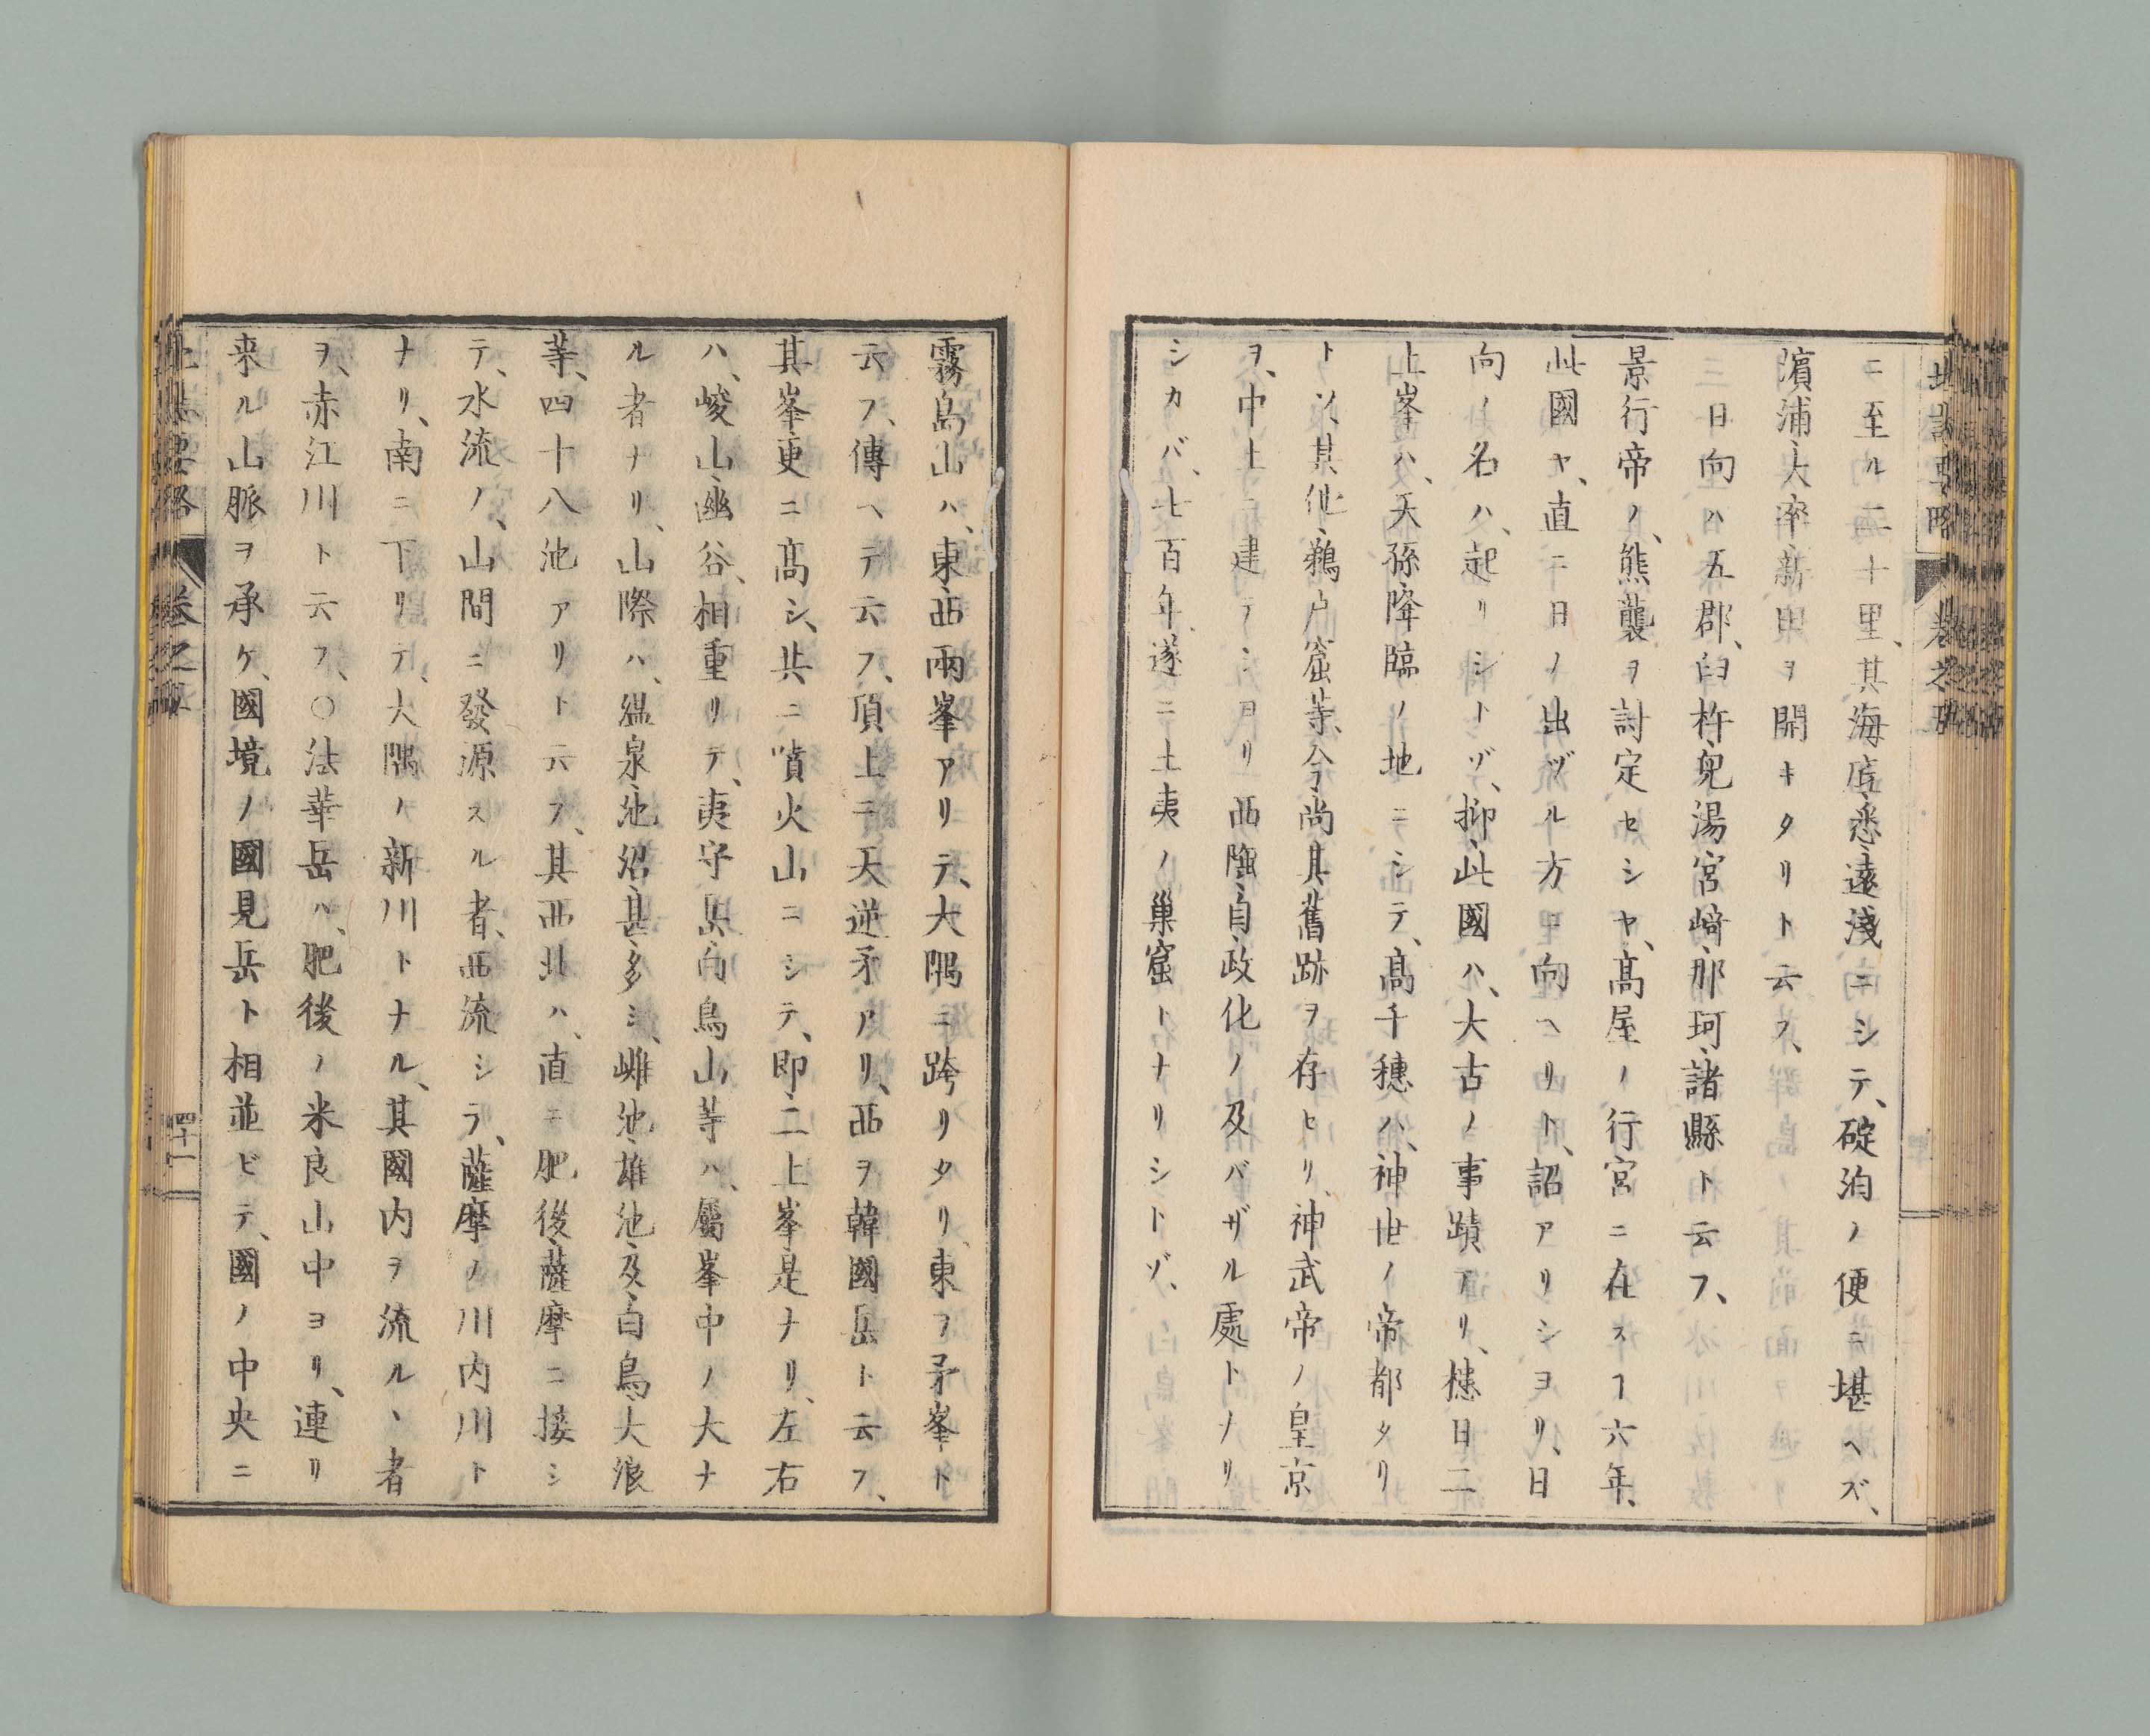 ニ至ル二十里、其海底悉遠淺ニシテ、碇泊ノ便ニ堪ヘズ、
濱浦大率新田ヲ開キタリト云フ、
三日向ハ五郡、臼杵兒湯宮崎那珂諸縣ト云フ、
景行帝ノ、熊襲ヲ討定セシヤ、高屋ノ行宮ニ在スヿ六年、
此國ヤ、直ニ日ノ出ヅル方ニ向ヘリト、詔アリシヨリ、日
向ノ名ハ、起リシトゾ、抑此國ハ、大古ノ事蹟アリ、槵日二
上峯ハ、天孫降臨ノ地ニシテ、高千穗ハ、神世ノ帝都タリ
トソ、其他鵜戸窟等、今尚其舊跡ヲ存セリ、神武帝ノ皇京
ヲ、中土ニ建テシヨリ、西陬自政化ノ及バザル處トナリ
シカバ、七百年遂ニ土夷ノ巢窟トナリシトゾ、
霧島山ハ、東西兩峯アリテ、大隅ニ跨リタリ、東ヲ矛峯ト
云フ、傳ヘテ云フ、頂上ニ天逆矛アリ、西ヲ韓國岳ト云フ、
其峯更ニ高シ、共ニ噴火山ニシテ、即二上峯是ナリ、左右
ハ、峻山幽谷、相重リテ、夷守岳白鳥山等ハ、屬峯中ノ大ナ
ル者ナリ、山際ハ、溫泉池沼甚多シ、雌池雄池及白鳥大浪
等、四十八池アリト云フ、其西北ハ、直ニ肥後薩摩ニ接シ
テ、水流ノ、山間ニ發源スル者、西流シテ、薩摩ノ川内川ト
ナリ、南ニ下リテ、大隅ノ新川トナル、其國内ヲ流ルヽ者
ヲ、赤江川ト云フ、○法華岳ハ、肥後ノ米良山中ヨリ、連リ
来ル山脈ヲ承ケ、國境ノ國見岳ト相並ビテ、國ノ中央ニ
地誌要略 卷之
四十一